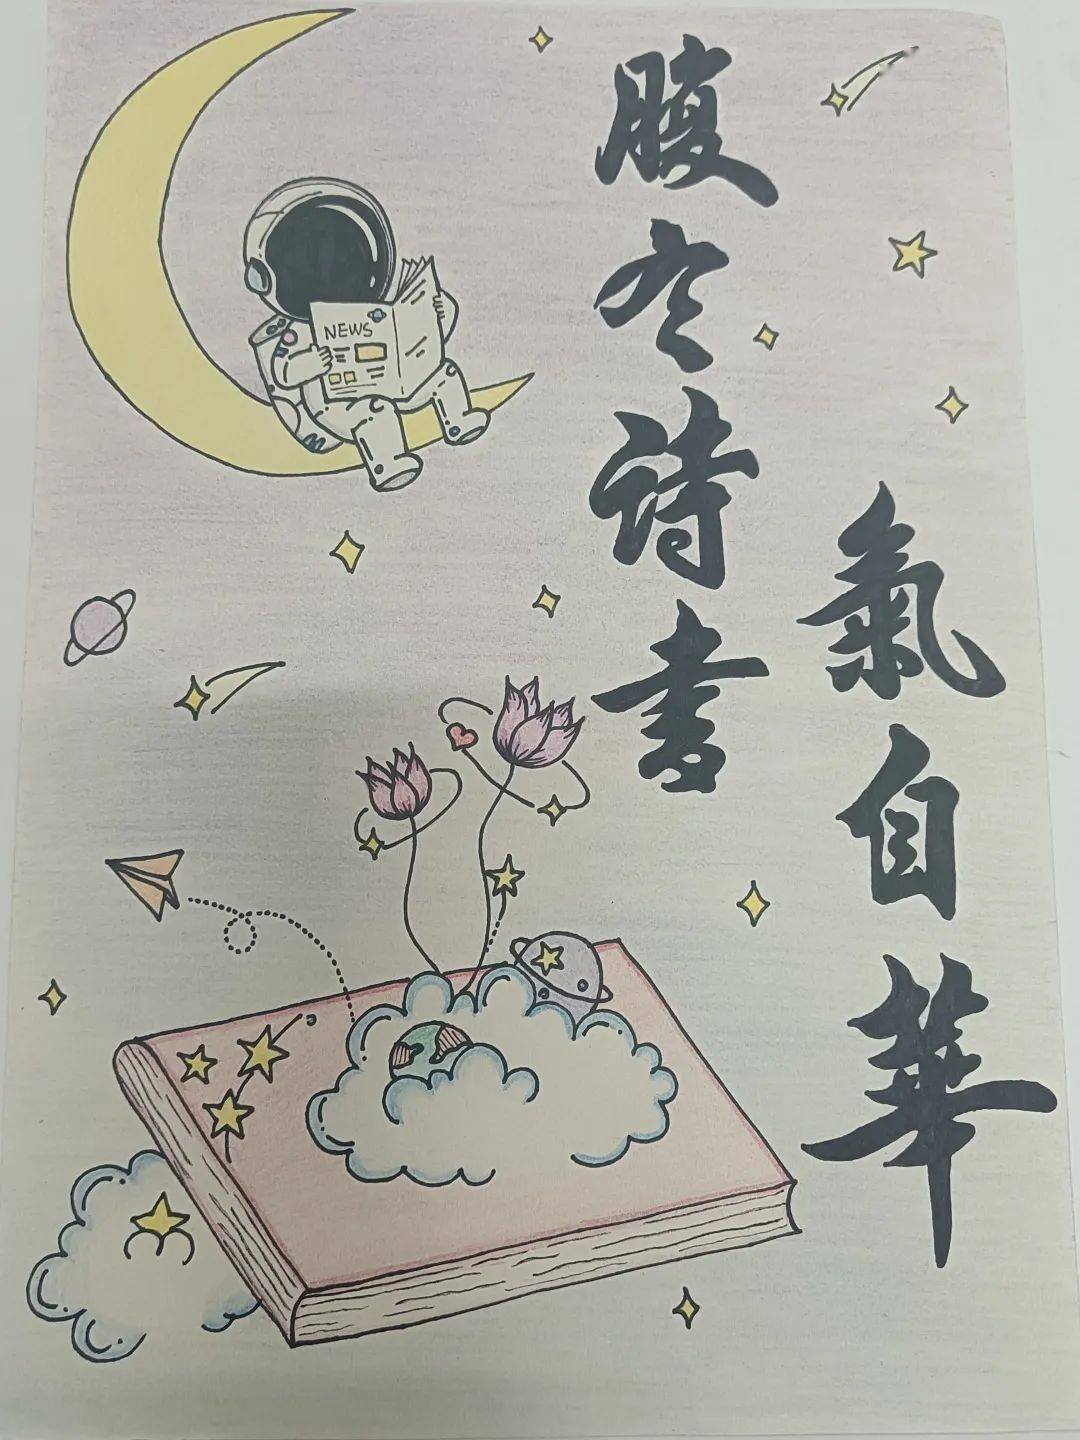 腹有诗書
氣自華
NEWS